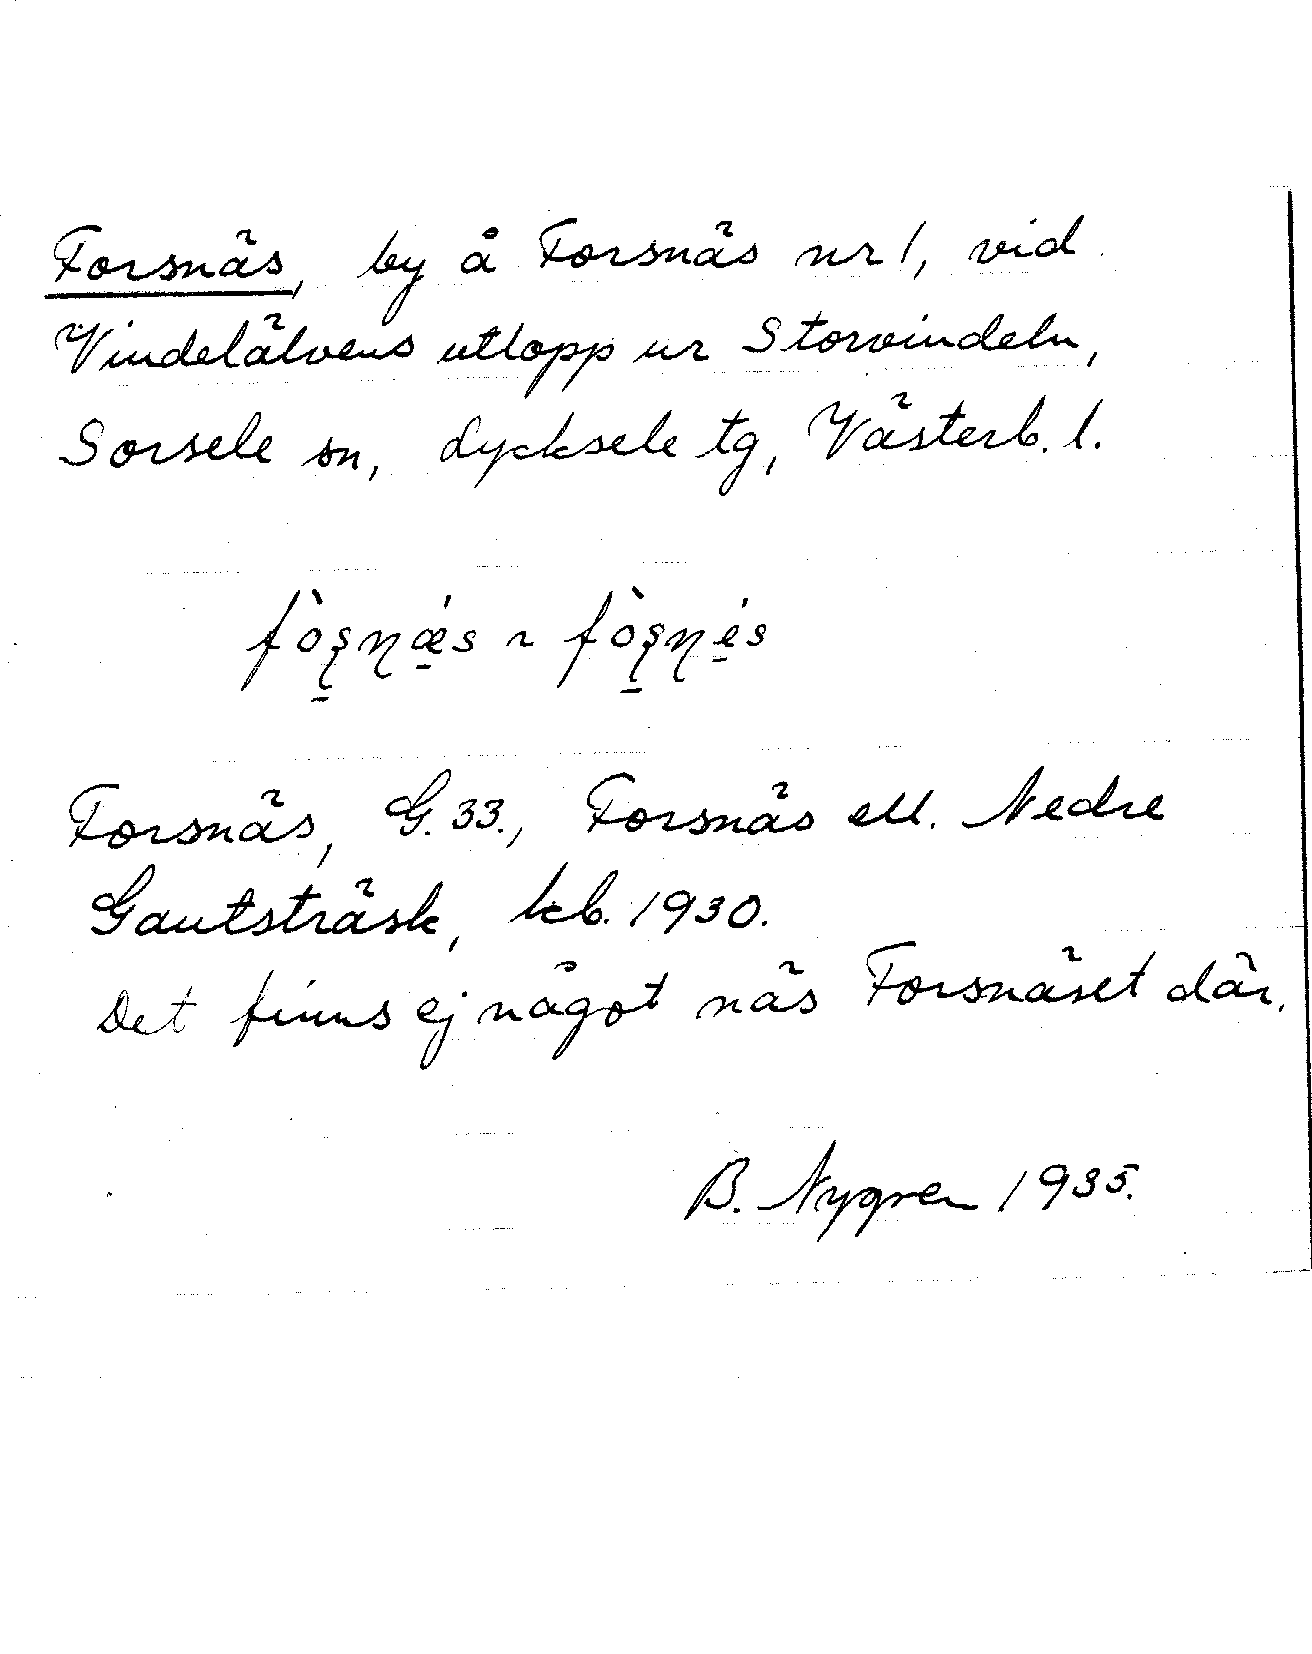 Forsnäs, by å Forsnäs nr 1, vid
Vindelälvens utlopp ur Storvindeln,
Sorsele sn, Lycksele tg, Västerb. l.
fòʂɳǽ̲s ~ fòʂɳé̲s
Forsnäs, G. 33., Forsnäs ell. Nedre
Gautsträsk, kb. 1930.
Det finns ej något näs Forsnäset där.
B. Nygren 1935.